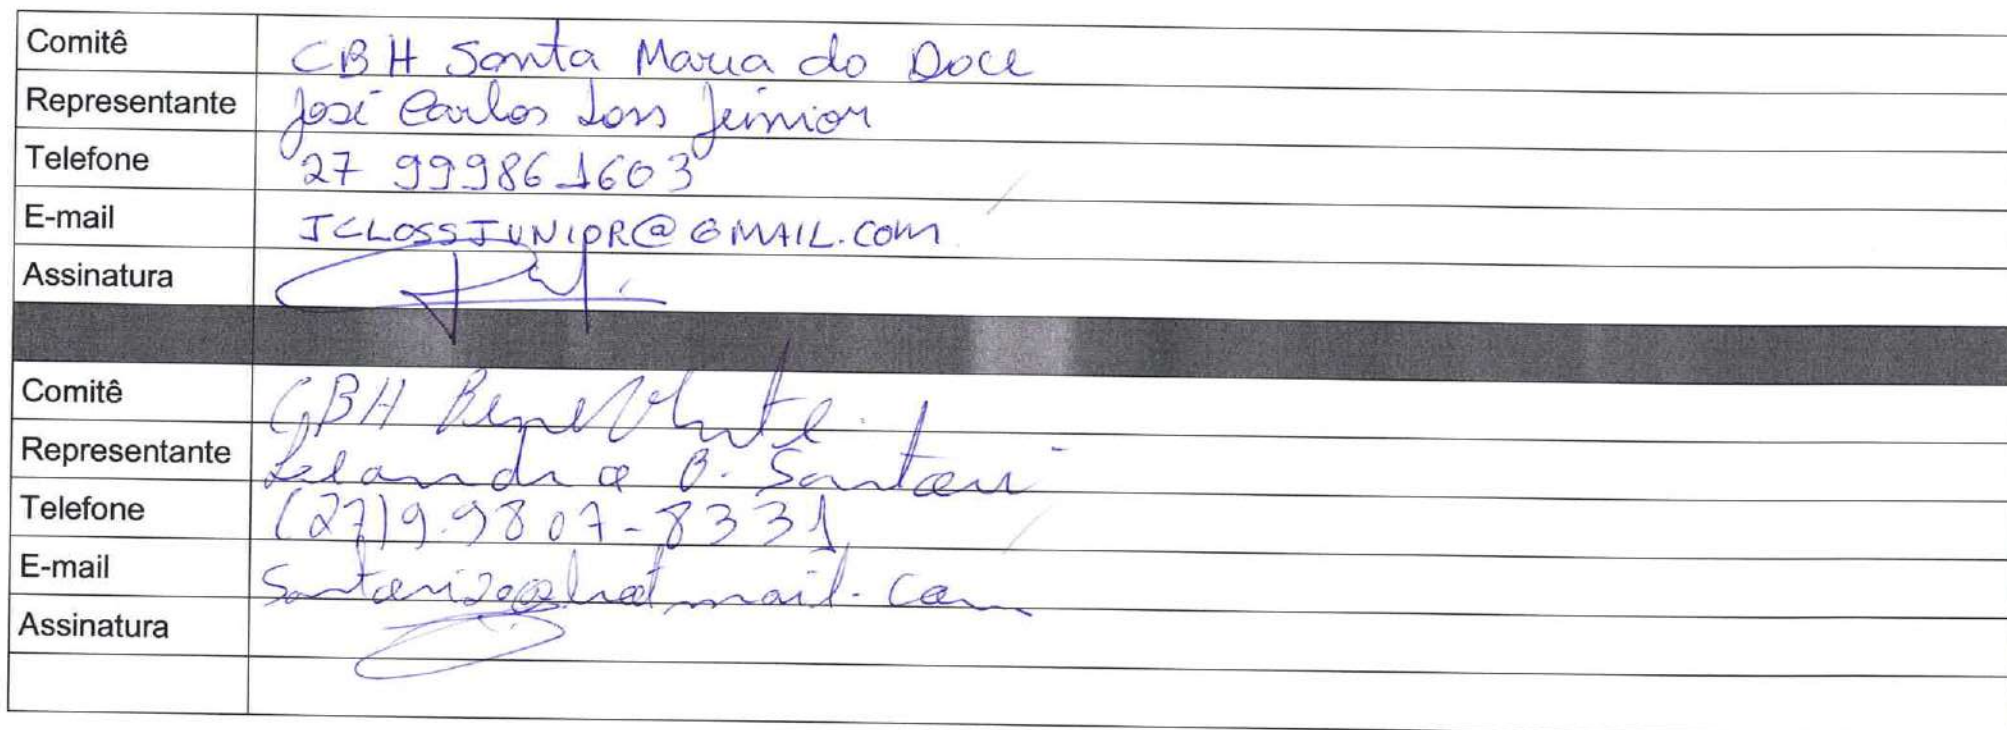 Comitê CBH Santa Maria do Doce
Representante José Carlos Loss Júnior
Telefone 27 999861603
E-mail JCLOSSJUNIOR@GMAIL.COM
Assinatura
Comitê CBH Benevente
Representante B. Santori
Telefone (27)9.9807-8331
E-mail
Assinatura